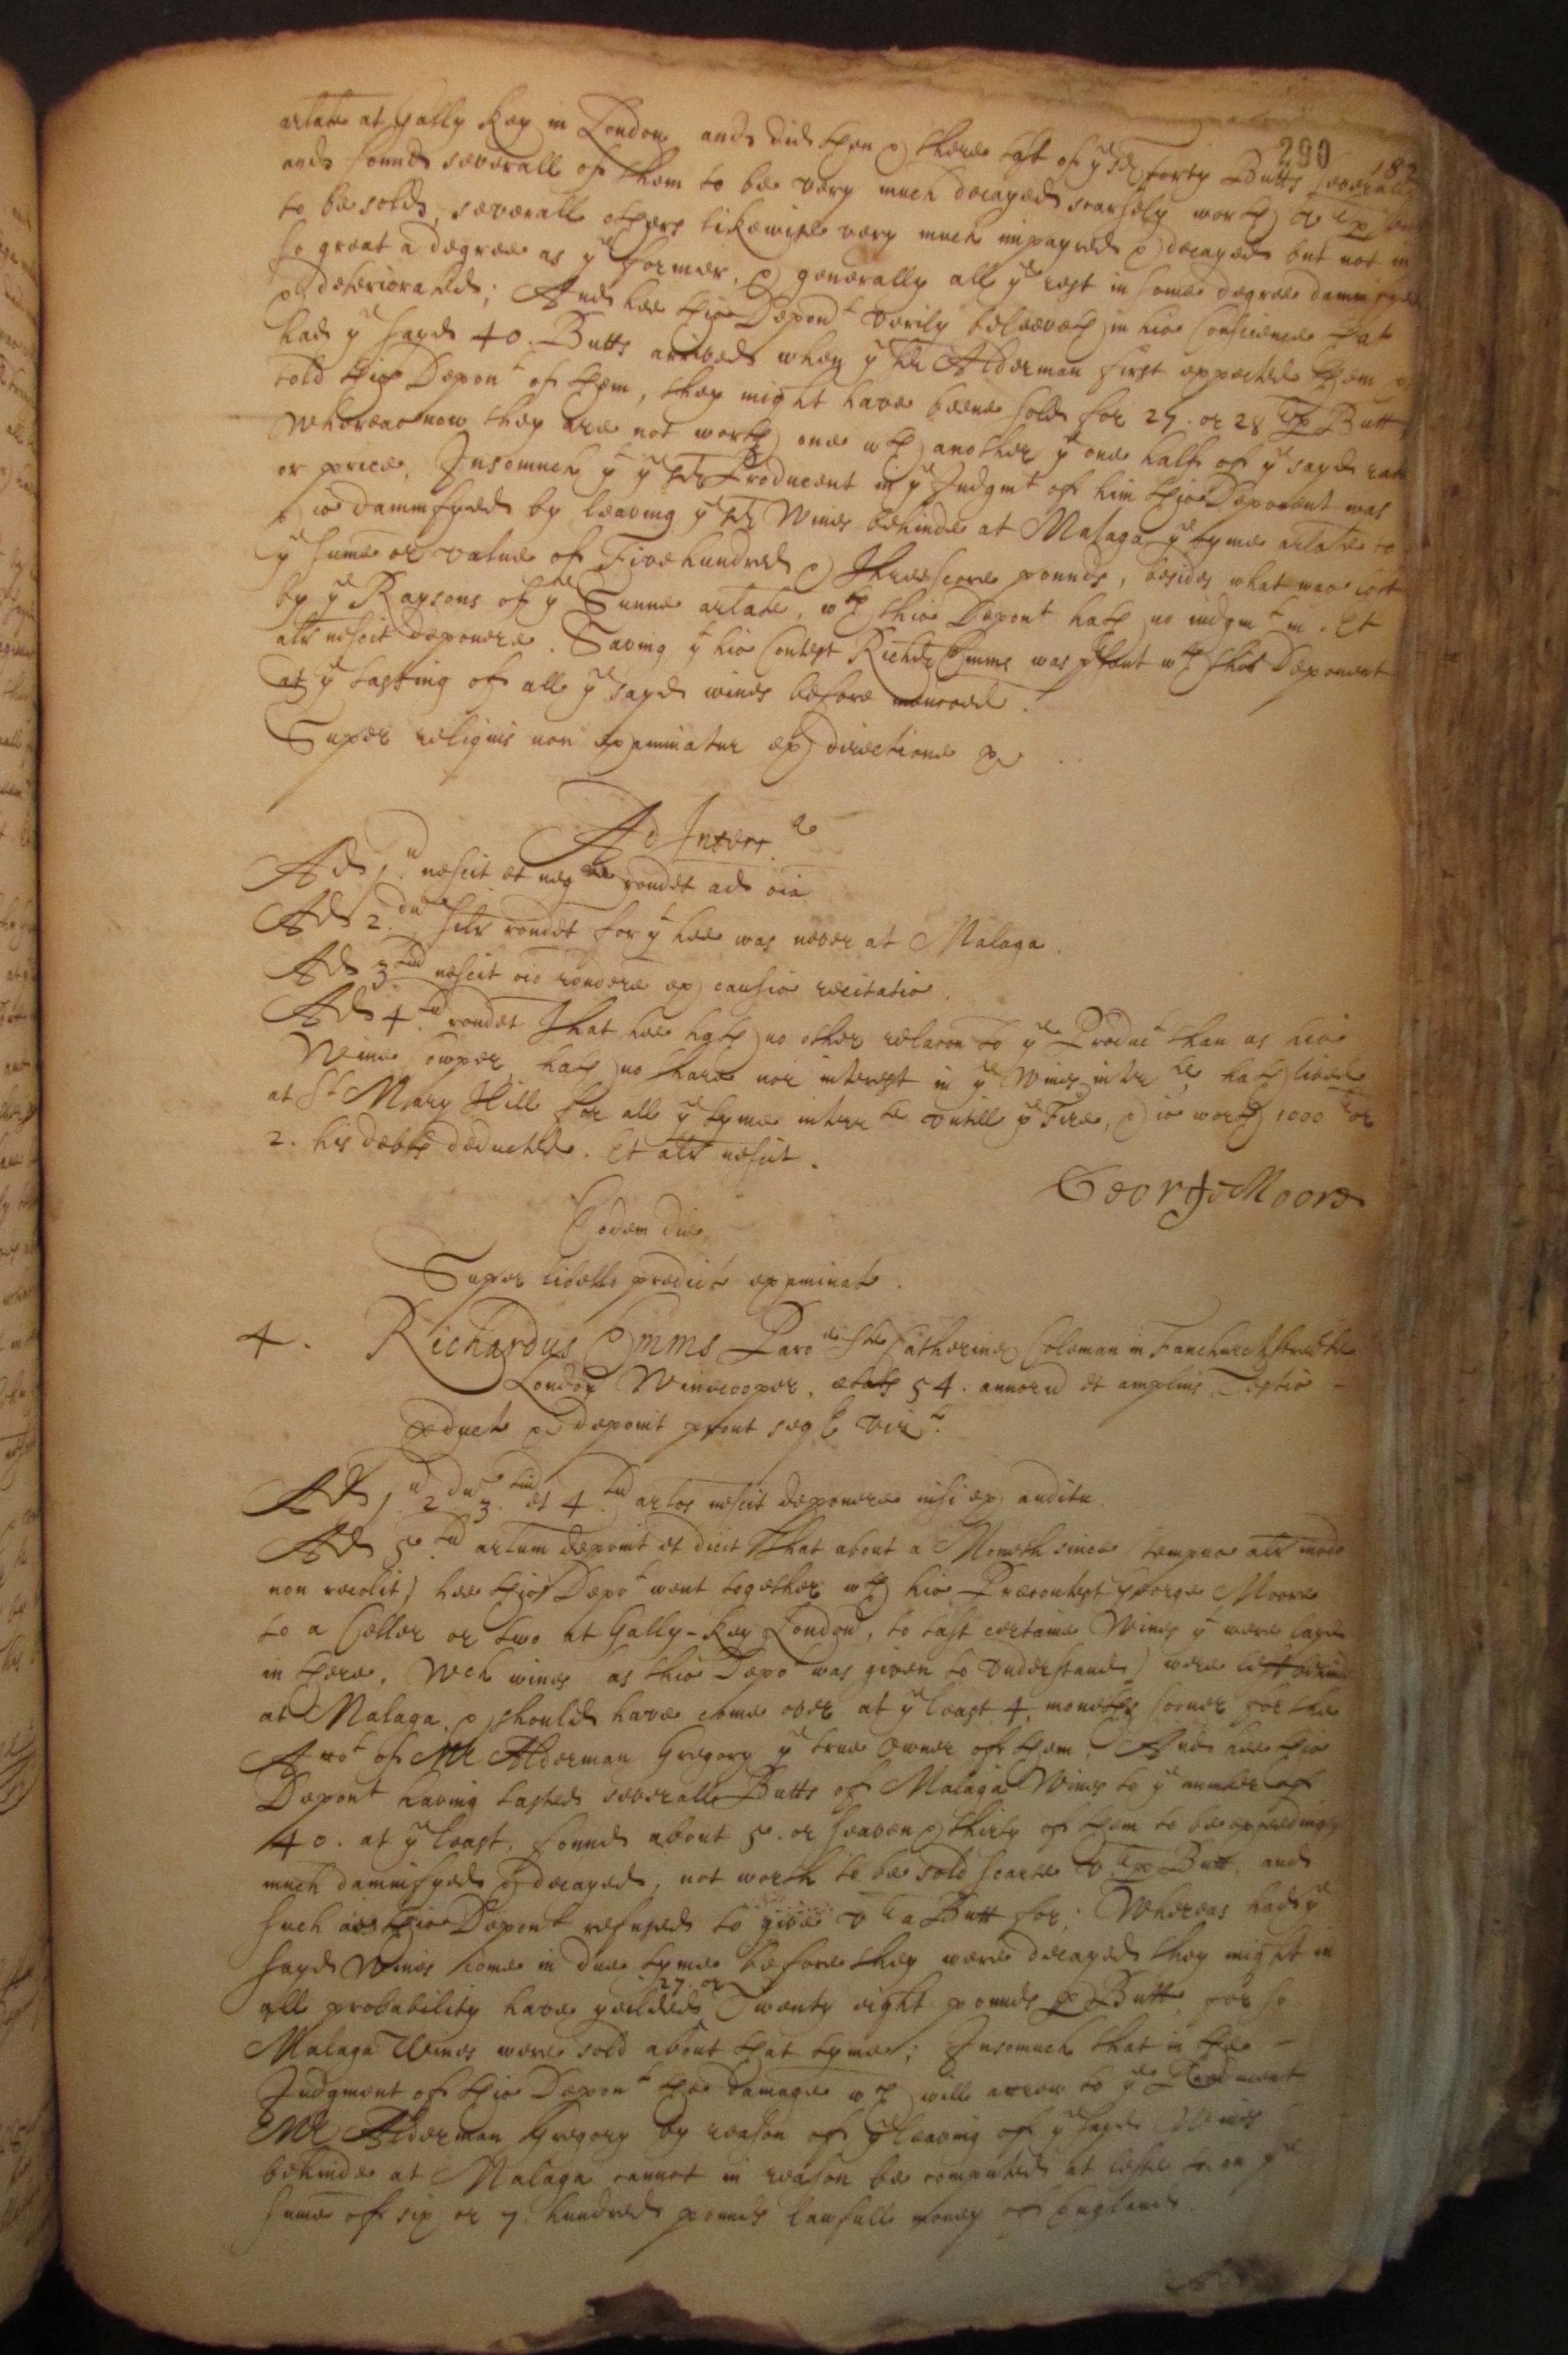 290
182
arlate at Gally Key in London and did then & there tast of ye sd forty Butts severally
and found severall of them to be very much decayed scarsely worth vli p
to be sold, severall others likewise very much impayred & decayed but not in
so great a degree as ye former, & generally all ye rest in some degree dammifyed
& deteriorated; And hee this Depont verily beleeveth in his Conscience that
had ye sayd 40. Butts arrived when ye sd Alderman first expected them &
told this Depont of them, they might have beene sold for 27. or 28 li p Butt
Whereas now they are not worth one wth another ye one halfe of ye sayd rate
or price, Insomuch yt ye sd Producent in ye Judgmt of him this Deponent was
& is dammifyed by leaving ye sd Wines behinde at Malaga ye tyme arlate to
ye sume or value of Five hundred & Threescore pounds, besides what was lost
by ye Raysons of ye Sunne arlate, wch this Depont hath no iudgmt in. Et
altr nescit deponere. Saving yt his Contest Richd Emms was psent wth this Deponent
at ye tasting of all ye sayd wines before menconed.
Super reliquis non examinatur ex directione &c
Ad Interr.
Ad 1.u nescit et neg rondet ad oia
Ad 2.du saltr rondet for yt hee was never at Malaga.
Ad 3tiu nescit oio rondere ex causis recitatis.
Ad 4.tu rondet That hee hath no other relacon to ye Producent than as his
Wine Cooper, hath no share nor interest in ye Wines interrte, hath lived
at St Mary Hill for all ye tyme interrte vntill ye Fire, & is worth 1000 li or
2. his debts deducted. Et altr nescit.
George Moore
Eodem die
Super libello predict examinat.
4. Richardus Emms Paro Ste Catherines Coleman in Fanchurch streete
London Winecooper, ætatis 54. annoru et amplius Testis
pduct &c deponit prout sequitur vizt.
Ad 1.u 2.du 3.tiu et 4.tu artos nescit deponere nisi ex auditu.
Ad 5.tu artum deponit et dicit That about a Moneth since (tempus altr modo
non recolit) hee this Depot went together wth his Precontest George Moore
to a Celler or two at Gally-Key London, to tast certaine Wines yt were layd
in there, Wch wines (as this Depot was given to vnderstand) were left behind
at Malaga, & should have come over at ye least 4. moneths sooner for the
Accot of Mr Alderman Gregory ye true Owner of them. And hee this
Depont having tasted severall Butts of Malaga Wines to ye number of
40. at ye least, found about 5. or seaven & thirty of them to be exceedingly
much dammifyed & decayed, not worth to be sold scarce v li p Butt, and
such as this Depont refused to give v li a Butt for; Whereas had ye
sayd Wines come in due tyme before they were decayed they might in
all probability have yeilded 27. or Twenty eight pounds p Butt for so
Malaga Wines were sold about that tyme; Insomuch that in the
Judgment of this Depont the damage wch will accrew to ye Producent
Mr Alderman Gregory by reason of ye leaving of ye sayd Wines
behinde at Malaga cannot in reason be computed at lesse than ye
sume of six or 7. hundred pounds lawfull money of England.